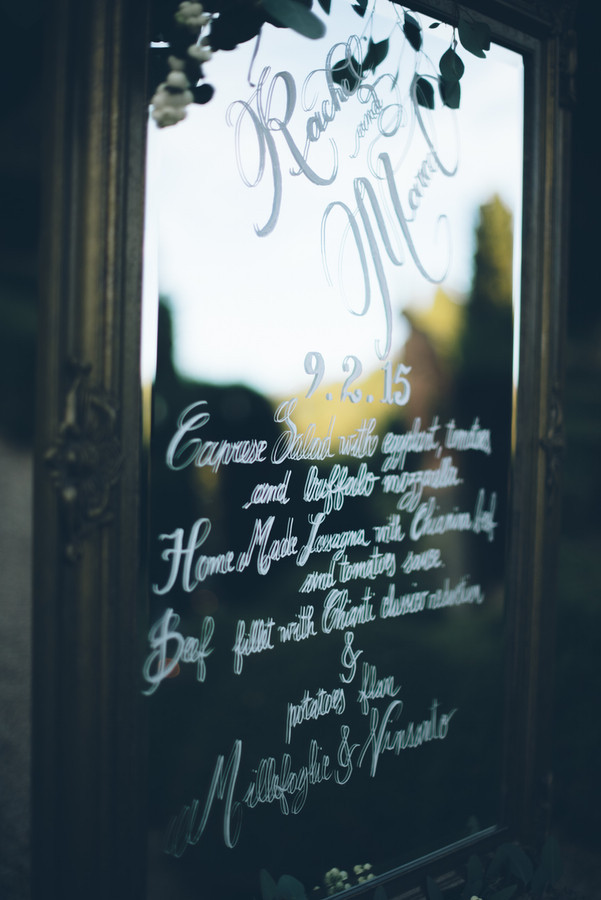 Rachel and
9.2.15
Caprese Salad with eggplant, tomatoes
and buffalo mozzarella.
Home Made Lasagna with Chianina beef
and tomatoes sauce.
Beef fillet with Chianti classico reduction
&
potatoes flan
Millefoglie & Vinsanto